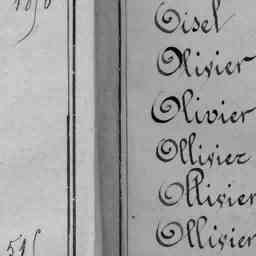 Oisel
Olivier
Olivier
Ollivier
Ollivier
Ollivier